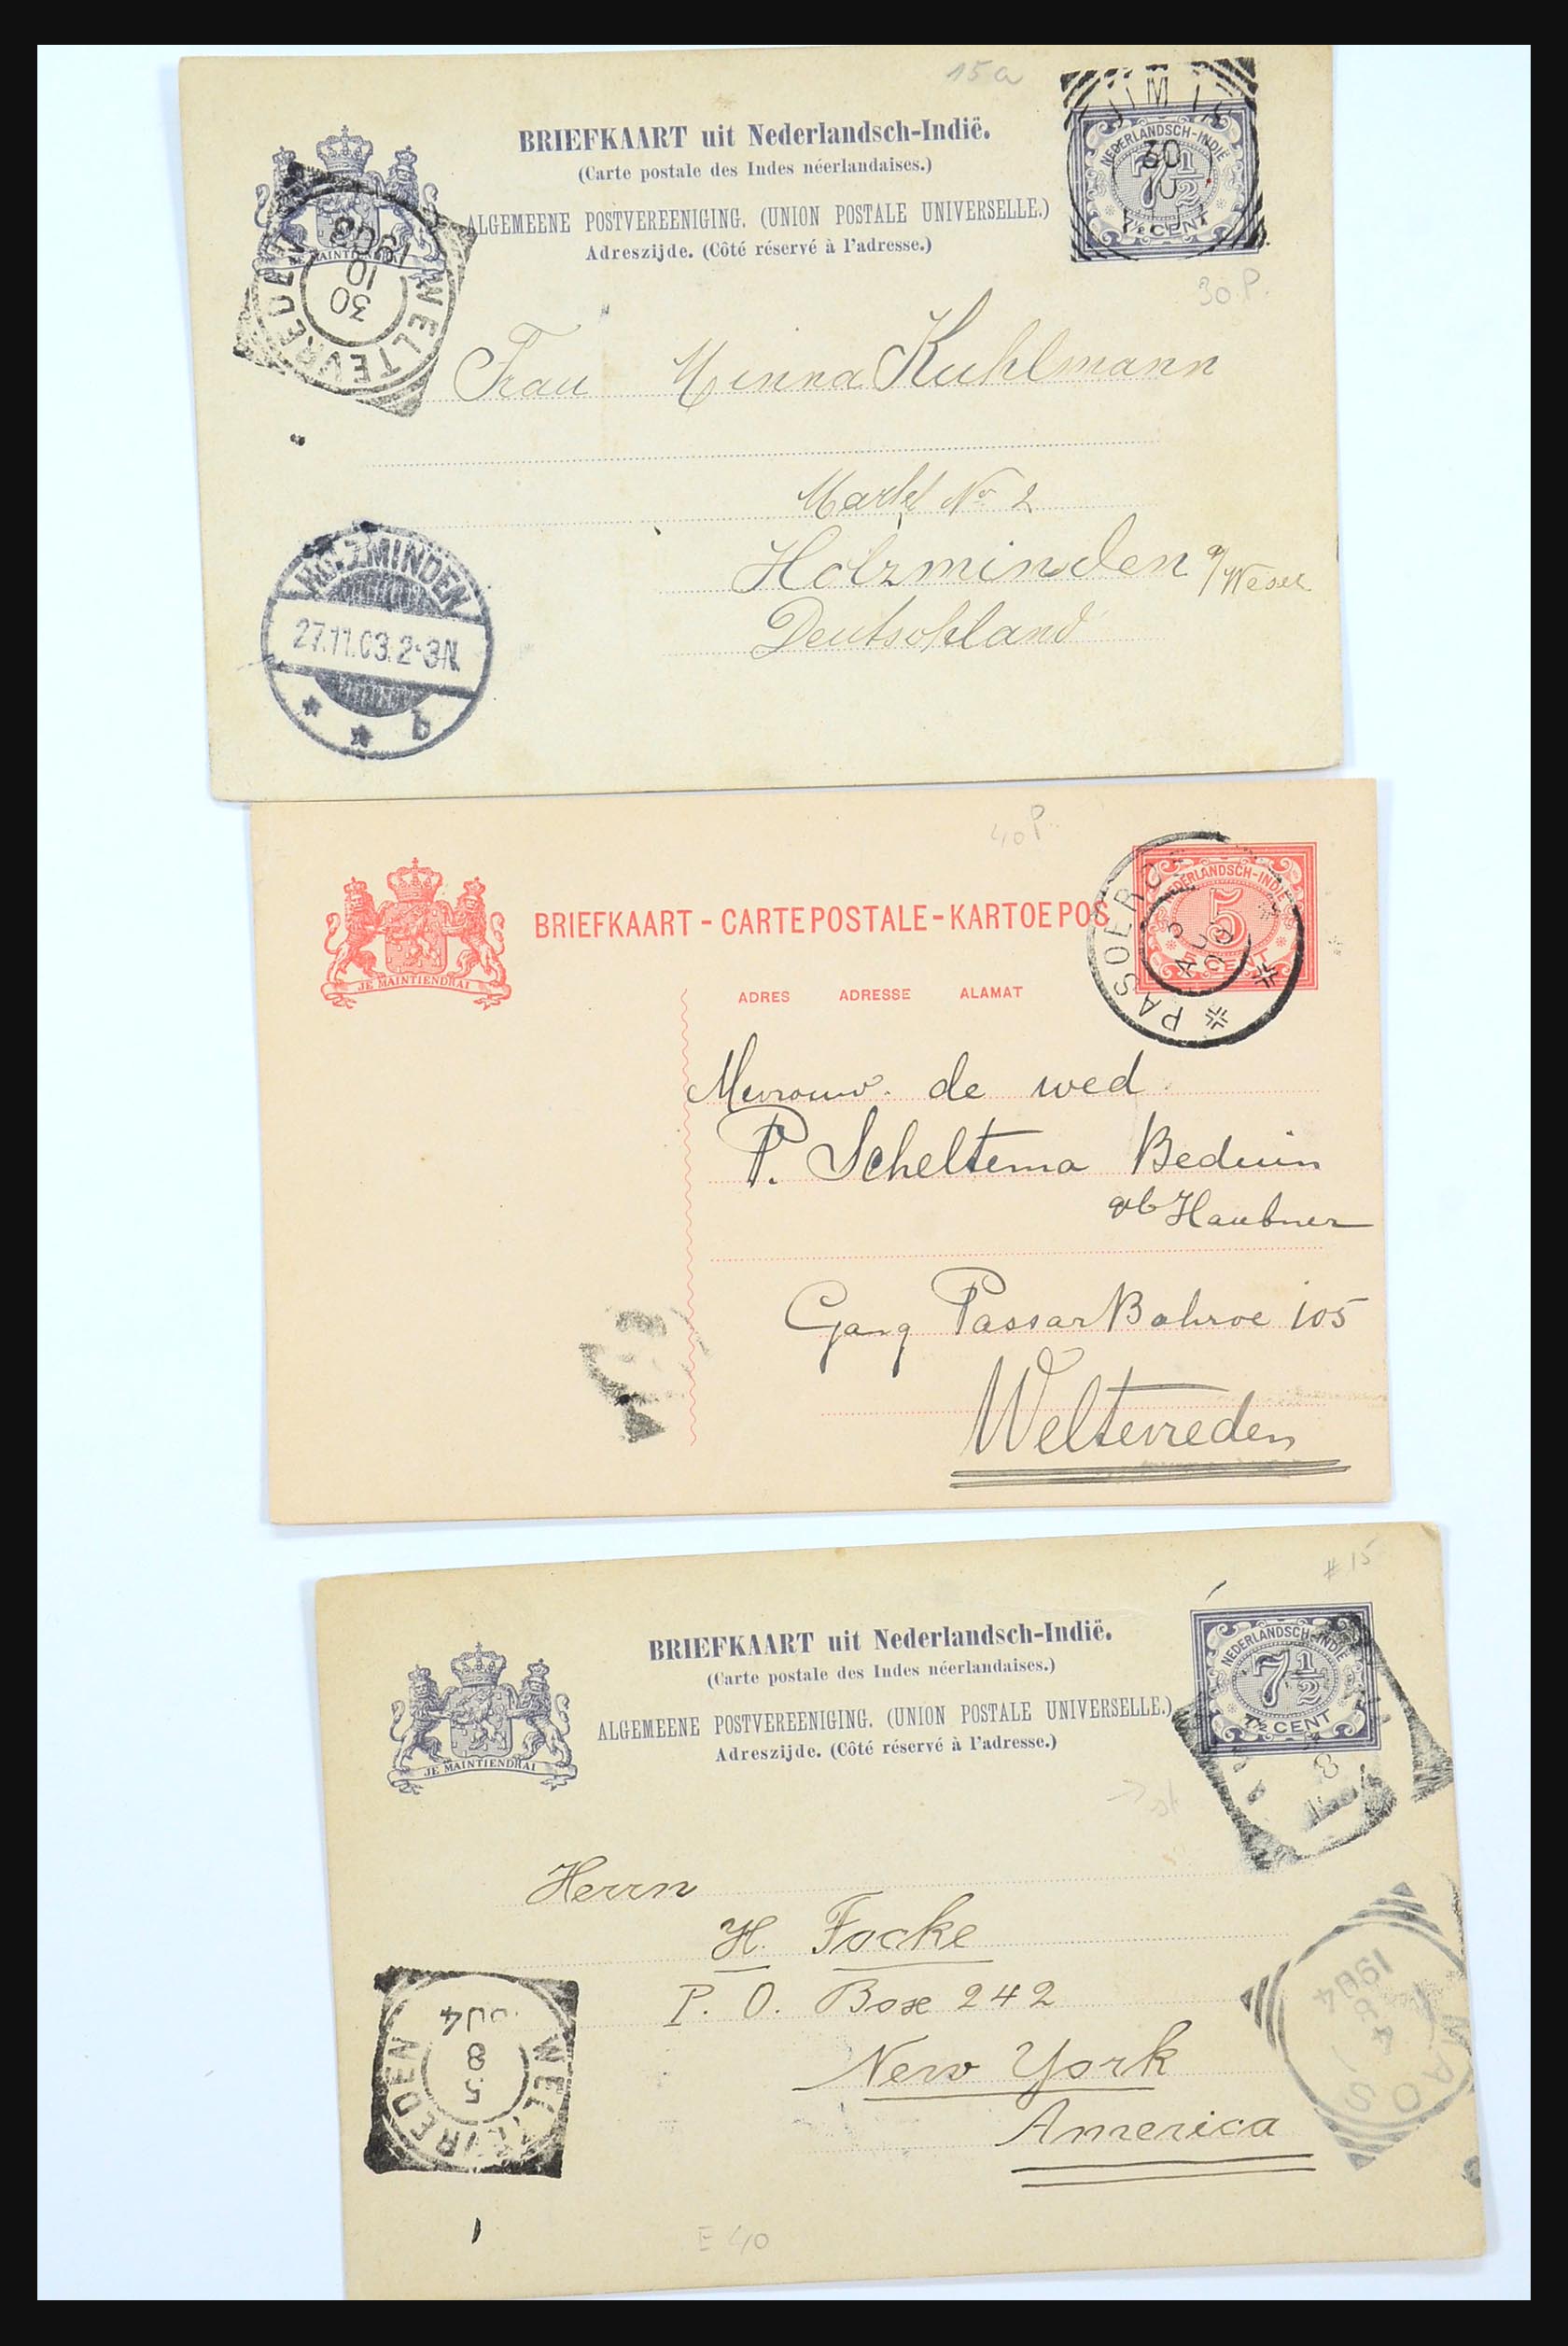 15a
BRIEFKAART uit Nederlandsch-Indië.
(Carte postale des Indes néerlandaises.)
ALGEMEENE POSTVEREENIGING. (UNION POSTALE UNIVERSELLE.)
Adreszijde. (Côté réservé à l'adresse.)
JE MAINTIENDRAI
NEDERLANDSCH-INDIË
7½
7½ CENT
30
WELTEVREDEN
30
10
30 P.
Frau Minna Kuhlmann
Markt No 2
Holzminden a/Weser
Deutschland
HOLZMINDEN
27.11.03.2-3N.
* * b
40 P.
BRIEFKAART - CARTE POSTALE - KARTOE POS.
NEDERLANDSCH-INDIË
5
CENT
JE MAINTIENDRAI
ADRES ADRESSE ALAMAT
PASOEROE
3
AU
Mevrouw de wed.
P. Scheltema Beduin
Haubner
Gang Passar Bahroe 105
Weltevreden
#15
BRIEFKAART uit Nederlandsch-Indië.
(Carte postale des Indes néerlandaises.)
ALGEMEENE POSTVEREENIGING. (UNION POSTALE UNIVERSELLE.)
Adreszijde. (Côté réservé à l'adresse.)
JE MAINTIENDRAI
NEDERLANDSCH-INDIË
7½
7½ CENT
8
Herrn
H. Focke
P. O. Box 242
New York
America
WELTEVREDEN
5
8
MAOS
4
8
1904
E 40